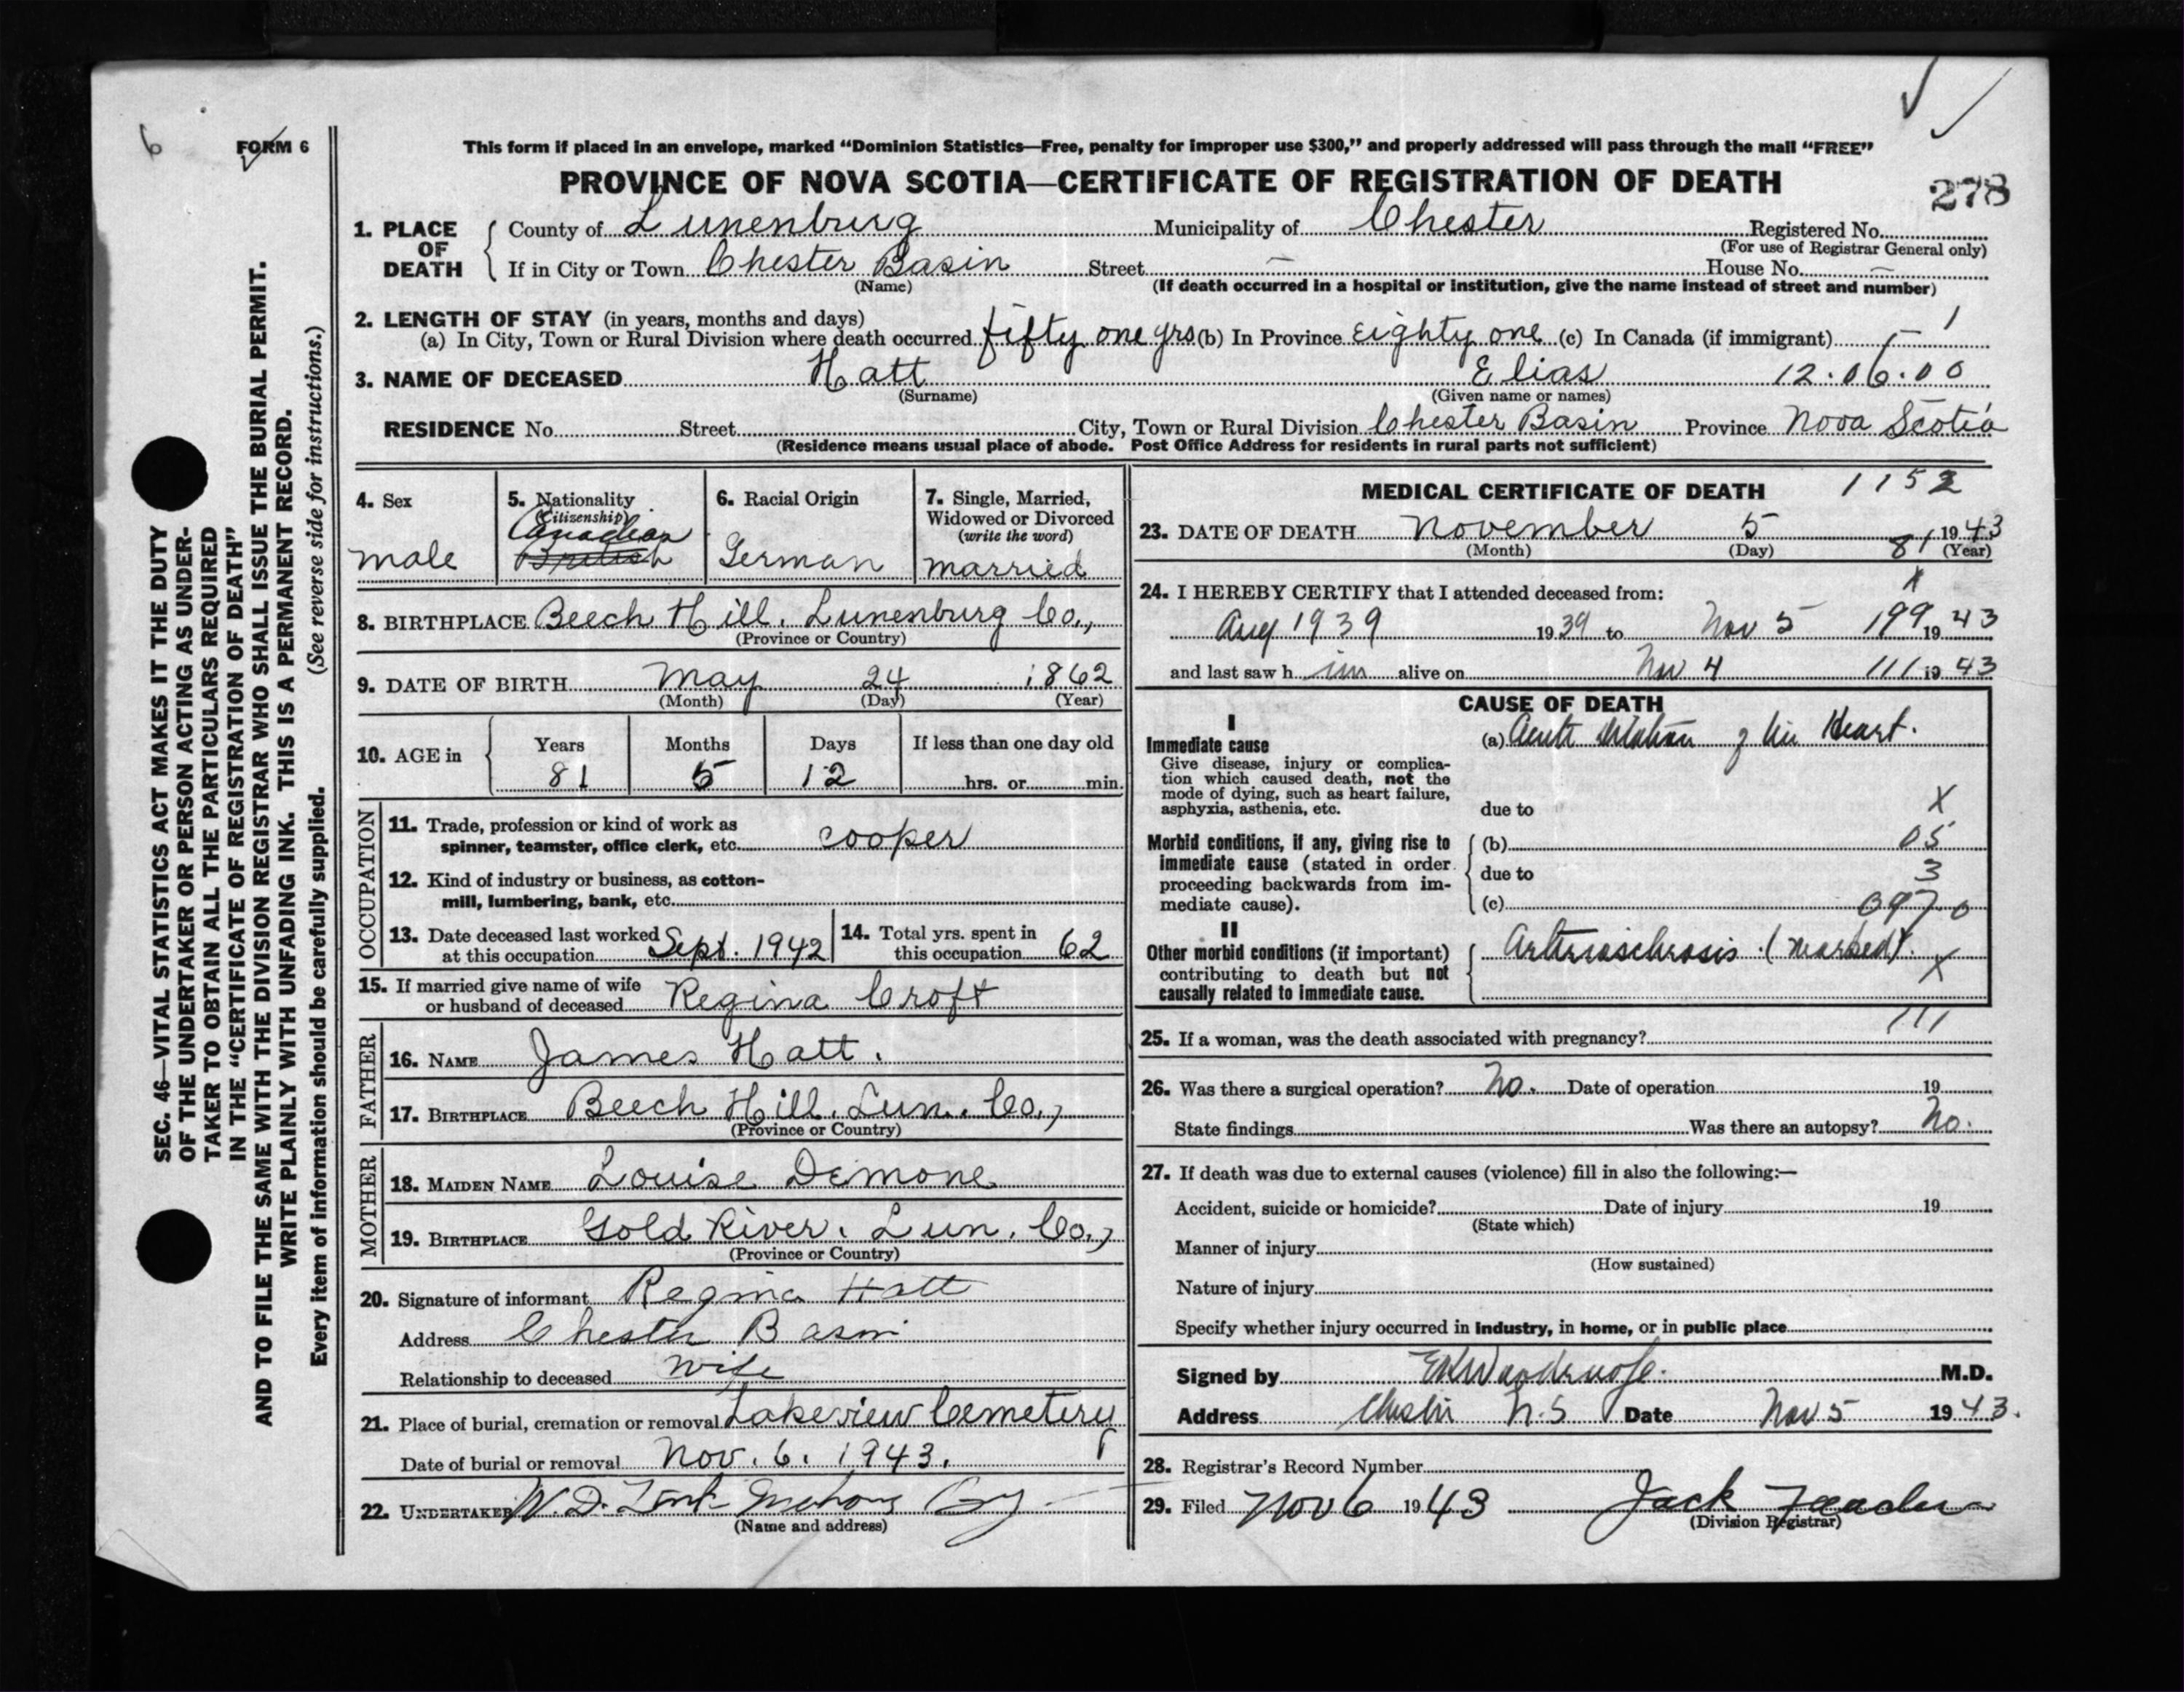 6
FORM 6
This form if placed in an envelope, marked "Dominion Statistics—Free, penalty for improper use $300," and properly addressed will pass through the mail "FREE"
PROVINCE OF NOVA SCOTIA—CERTIFICATE OF REGISTRATION OF DEATH
278
1. PLACE OF DEATH
County of Lunenburg Municipality of Chester Registered No.
(For use of Registrar General only)
If in City or Town Chester Basin Street — House No. —
(Name) (If death occurred in a hospital or institution, give the name instead of street and number)
2. LENGTH OF STAY (in years, months and days)
(a) In City, Town or Rural Division where death occurred fifty one yrs (b) In Province Eighty one (c) In Canada (if immigrant) — 1
3. NAME OF DECEASED Hatt Elias 12.06.00
(Surname) (Given name or names)
RESIDENCE No. Street City, Town or Rural Division Chester Basin Province Nova Scotia
(Residence means usual place of abode. Post Office Address for residents in rural parts not sufficient)
4. Sex
male
5. Nationality
(Citizenship)
Canadian
British
6. Racial Origin
German
7. Single, Married,
Widowed or Divorced
(write the word)
married
8. BIRTHPLACE Beech Hill. Lunenburg Co.,
(Province or Country)
9. DATE OF BIRTH May 24 1862
(Month) (Day) (Year)
10. AGE in
Years Months Days If less than one day old
81 5 12 hrs. or min.
OCCUPATION
11. Trade, profession or kind of work as
spinner, teamster, office clerk, etc. cooper
12. Kind of industry or business, as cotton-
mill, lumbering, bank, etc.
13. Date deceased last worked
at this occupation Sept. 1942
14. Total yrs. spent in
this occupation 62
15. If married give name of wife
or husband of deceased Regina Croft
FATHER
16. NAME James Hatt.
17. BIRTHPLACE Beech Hill. Lun. Co.,
(Province or Country)
MOTHER
18. MAIDEN NAME Louise Demone
19. BIRTHPLACE Gold River. Lun. Co.,
(Province or Country)
20. Signature of informant Regina Hatt
Address Chester Basin
Relationship to deceased wife
21. Place of burial, cremation or removal Lakeview Cemetery
Date of burial or removal Nov. 6. 1943.
22. UNDERTAKER W. D. Zink Mahone Bay
(Name and address)
MEDICAL CERTIFICATE OF DEATH 1152
23. DATE OF DEATH November 5 1943
(Month) (Day) 81 (Year)
24. I HEREBY CERTIFY that I attended deceased from: X
Aug 1939 1939 to Nov 5 199 1943
and last saw h im alive on Nov 4 111 1943
CAUSE OF DEATH
I
Immediate cause
Give disease, injury or complica-
tion which caused death, not the
mode of dying, such as heart failure,
asphyxia, asthenia, etc.
(a) Acute dilatation of the Heart.
due to X
Morbid conditions, if any, giving rise to
immediate cause (stated in order
proceeding backwards from im-
mediate cause).
(b) 05
due to 3
(c) 0970
II
Other morbid conditions (if important)
contributing to death but not
causally related to immediate cause.
Arteriosclerosis. (marked).
X
111
25. If a woman, was the death associated with pregnancy?
26. Was there a surgical operation? No. Date of operation 19
State findings Was there an autopsy? No.
27. If death was due to external causes (violence) fill in also the following:—
Accident, suicide or homicide? Date of injury 19
(State which)
Manner of injury
(How sustained)
Nature of injury
Specify whether injury occurred in industry, in home, or in public place
Signed by M.D.
Address Chester N.S Date Nov 5 1943.
28. Registrar's Record Number
29. Filed Nov 6 1943 Jack
(Division Registrar)
SEC. 46—VITAL STATISTICS ACT MAKES IT THE DUTY
OF THE UNDERTAKER OR PERSON ACTING AS UNDER-
TAKER TO OBTAIN ALL THE PARTICULARS REQUIRED
IN THE "CERTIFICATE OF REGISTRATION OF DEATH"
AND TO FILE THE SAME WITH THE DIVISION REGISTRAR WHO SHALL ISSUE THE BURIAL PERMIT.
WRITE PLAINLY WITH UNFADING INK. THIS IS A PERMANENT RECORD.
Every item of information should be carefully supplied. (See reverse side for instructions.)